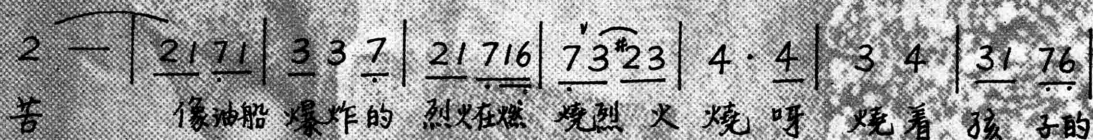 2 — | 21 71 | 3 3 7 | 21 716 | 73 #23 | 4 · 4 | 3 4 | 31 76
苦 像油船 爆炸的 烈火在燃 燒烈 火 燒 呀 燒着 孩 子的